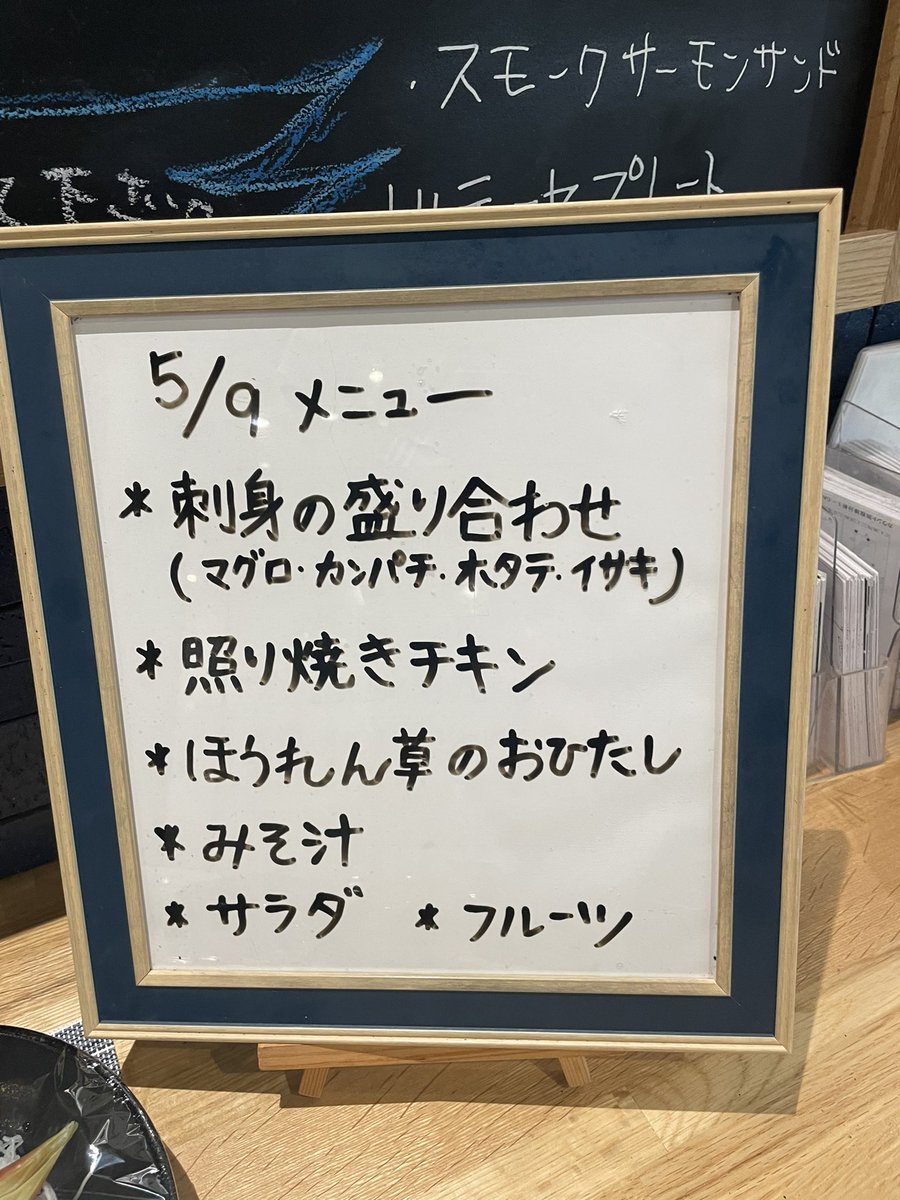 ・スモークサーモンサンド
プレート
5/9 メニュー
* 刺身の盛り合わせ
(マグロ・カンパチ・ホタテ・イサキ)
* 照り焼きチキン
* ほうれん草のおひたし
* みそ汁
* サラダ * フルーツ